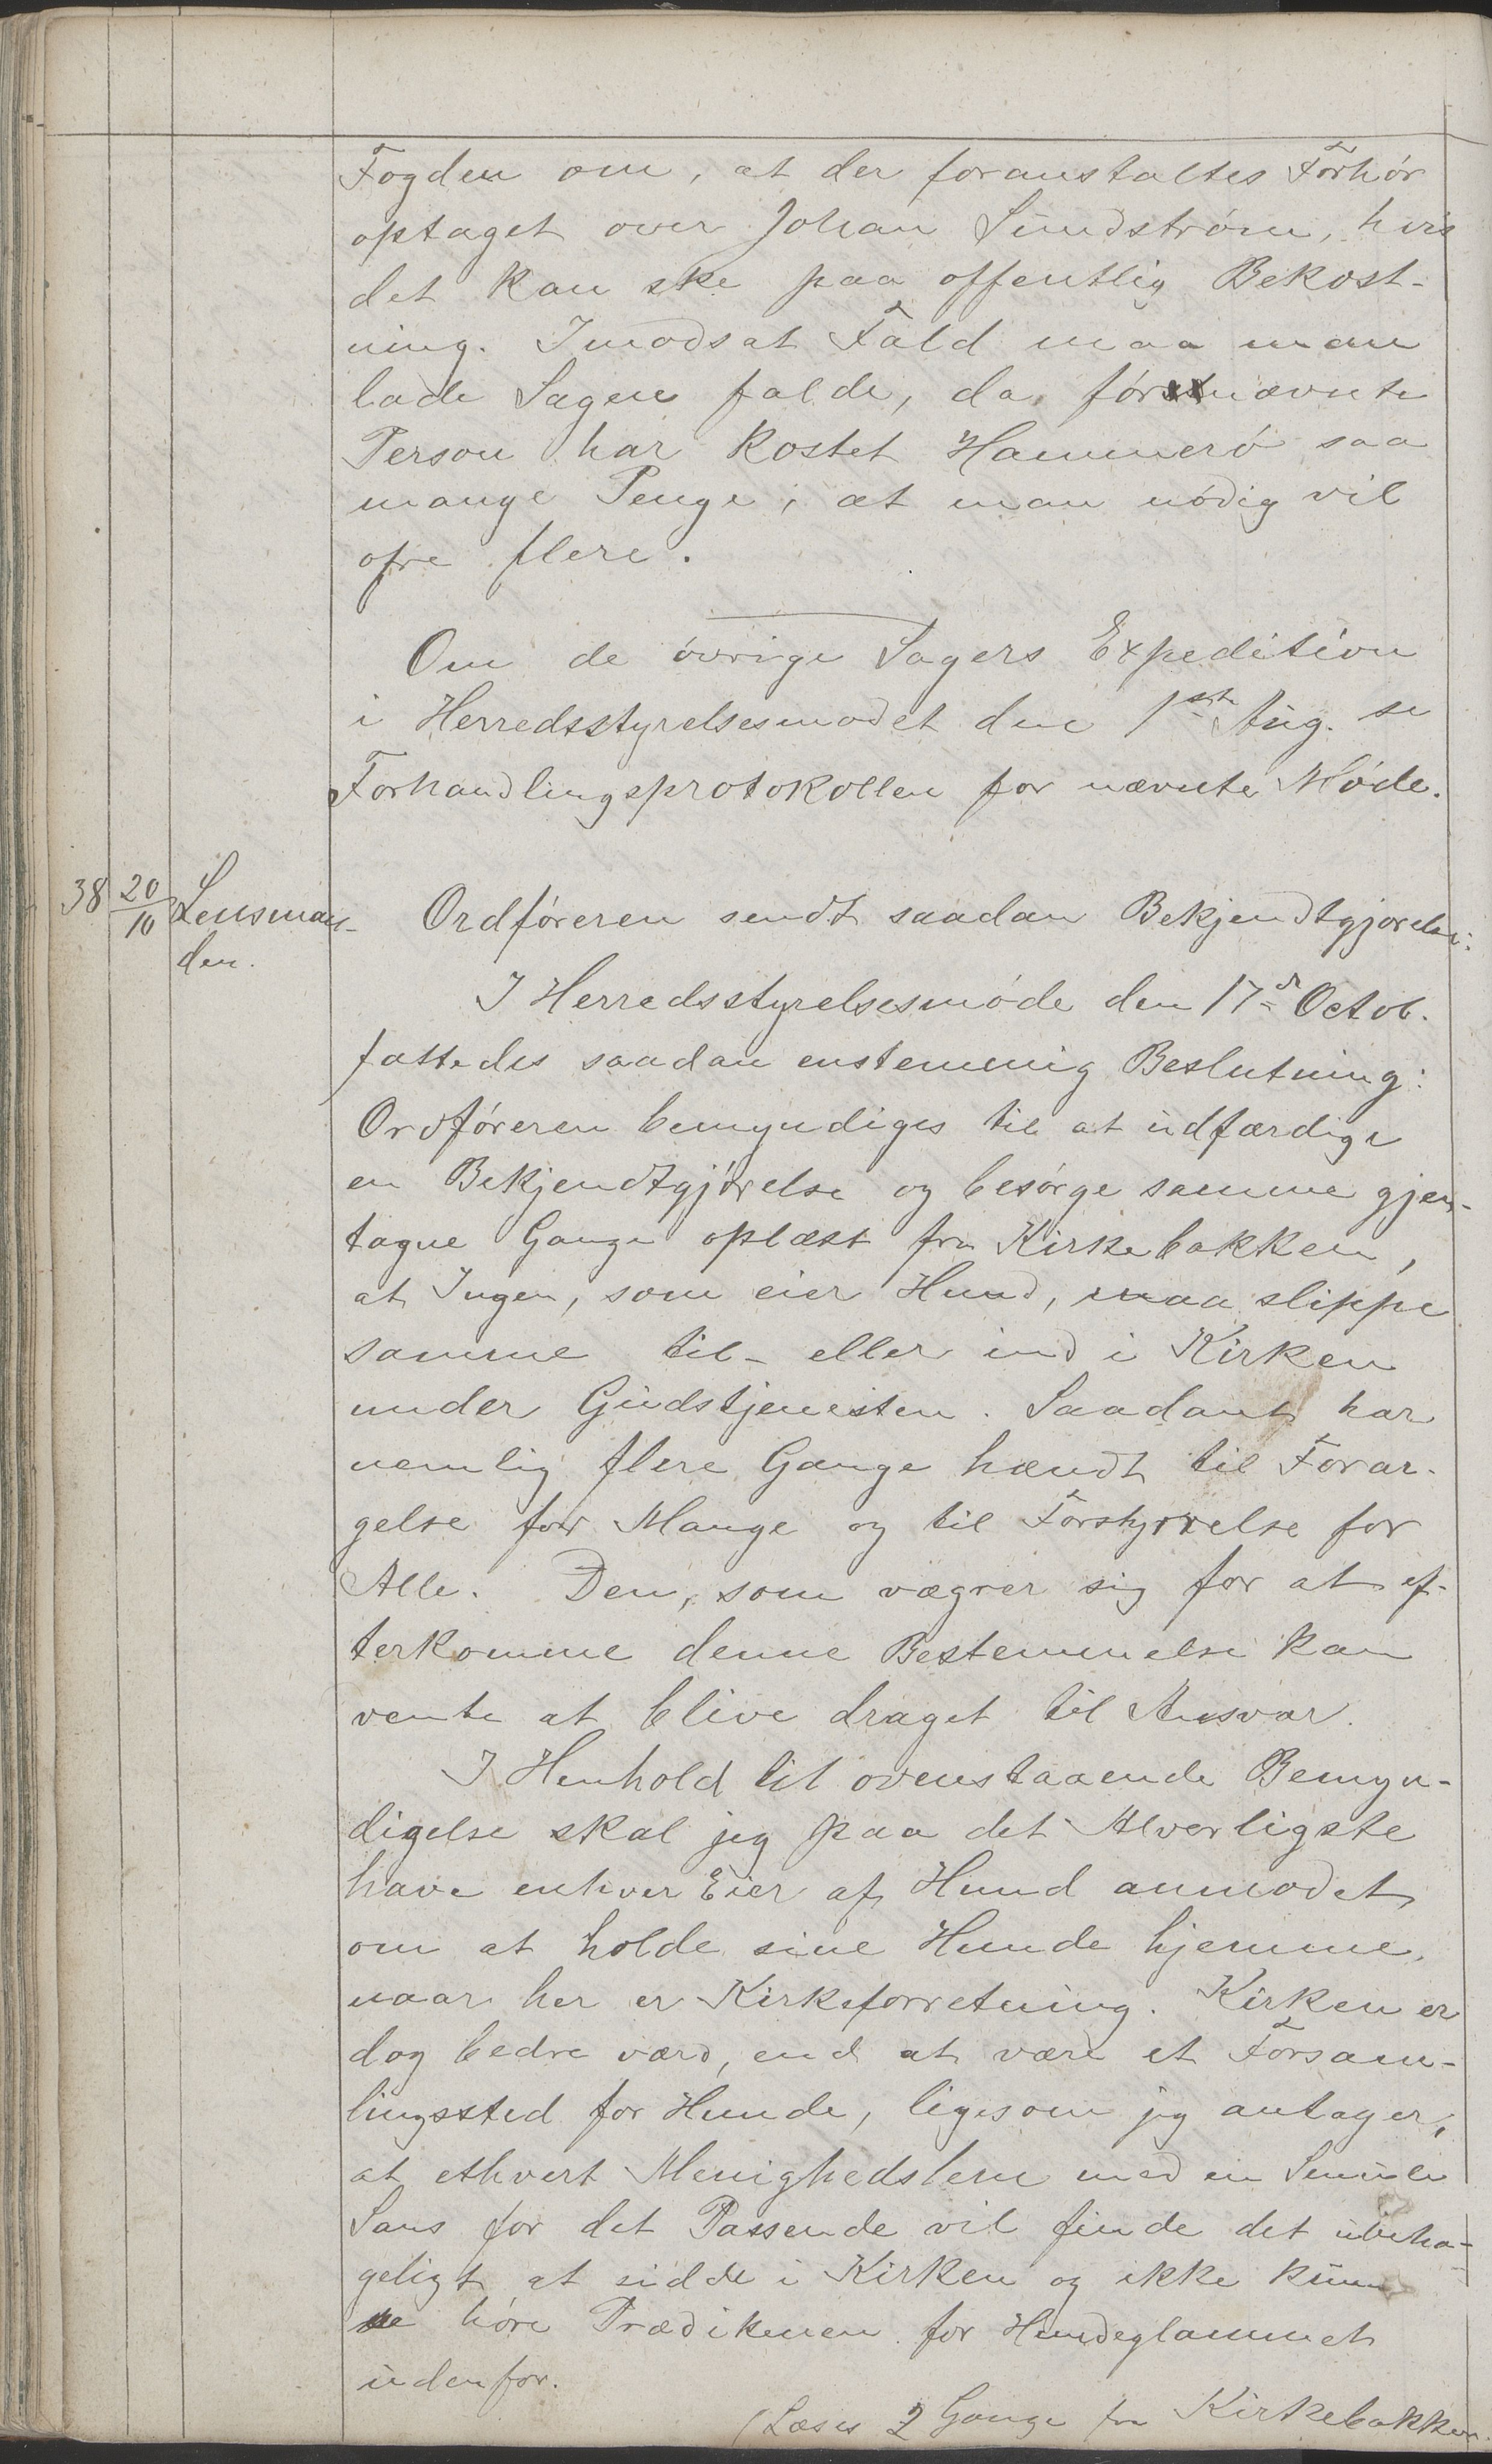 Fogden om, at der foranstaltes Forhör
optaget over Johan Sundström, hvis
det kan ske paa offentlig Bekost-
ning. Imodsat Fald maa man
lade Sagen falde, da förstnævnte
Person har kostet Hammerö saa
mange Penge, at man nödig vil
ofre flere.
Om de övrige Sagers Expedition
i Herredsstyrelsesmödet den 1ste Aug. se
Forhandlingsprotokollen for nævnte Möde.
38 20/10 Lensman-
den.
Ordföreren sendt saadan Bekjendtgjörelse:
I Herredsstyrelsesmöde den 17de Octob.
fattedes saadan enstemmig Beslutning:
Ordföreren bemyndiges til at udfærdige
en Bekjendtgjörelse og besörge samme gjen-
tagne Gange oplæst fra Kirkebakken,
at Ingen, som eier Hund, maa slippe
samme til- eller ind i Kirken
under Gudstjenesten. Saadant har
nemlig flere Gange hændt til Forar-
gelse for Mange og til Forstyrrelse for
Alle. Den, som vægrer sig for at ef-
terkomme denne Bestemmelse kan
vente at blive draget til Ansvar.
I Henhold til ovenstaaende Bemyn-
digelse skal jeg paa det Alverligste
have enhver Eier af Hund anmodet
om at holde sine Hunde hjemme,
naar her er Kirkeforretning. Kirken er
dog bedre værd, end at være et Forsam-
lingssted for Hunde, ligesom jeg antager,
at ethvert Menighedslem med en Smule
Sans for det Passende vil finde det ubeha-
geligt at sidde i Kirken og ikke kun
ne höre Prædikenen for Hundeglammet
udenfor.
(Læses 2 Gange fra Kirkebakken.